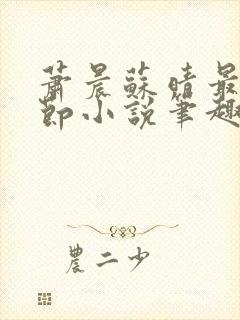 蕭晨蘇晴最
節小說筆趣
農二少